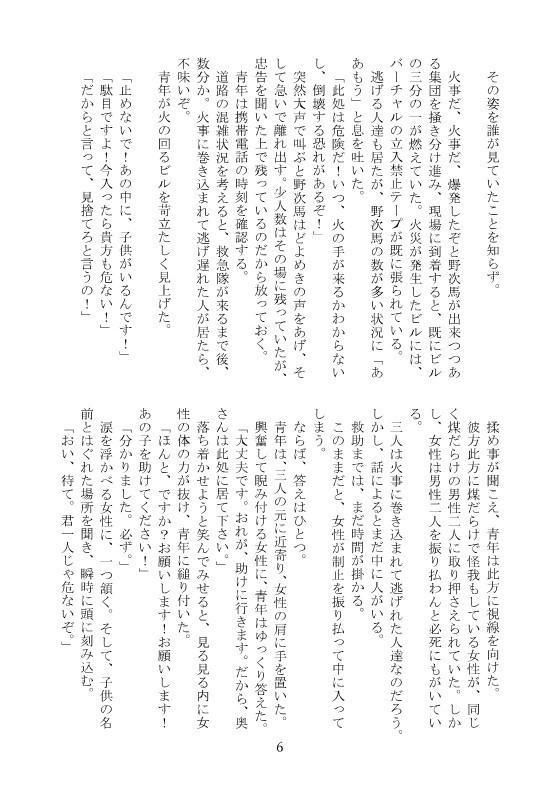 その姿を誰が見ていたことを知らず。
火事だ、火事だ、爆発したぞと野次馬が出来つつあ
る集団を掻き分け進み、現場に到着すると、既にビル
の三分の一が燃えていた。火災が発生したビルには、
バーチャルの立入禁止テープが既に張られている。
逃げる人達も居たが、野次馬の数が多い状況に「あ
あもう」と息を吐いた。
「此処は危険だ！いつ、火の手が来るかわからない
し、倒壊する恐れがあるぞ！」
突然大声で叫ぶと野次馬はどよめきの声をあげ、そ
して急いで離れ出す。少人数はその場に残っていたが、
忠告を聞いた上で残っているのだから放っておく。
青年は携帯電話の時刻を確認する。
道路の混雑状況を考えると、救急隊が来るまで後、
数分か。火事に巻き込まれて逃げ遅れた人が居たら、
不味いぞ。
青年が火の回るビルを苛立たしく見上げた。
「止めないで！あの中に、子供がいるんです！」
「駄目ですよ！今入ったら貴方も危ない！」
「だからと言って、見捨てろと言うの！」
揉め事が聞こえ、青年は此方に視線を向けた。
彼方此方に煤だらけで怪我もしている女性が、同じ
く煤だらけの男性二人に取り押さえられていた。しか
し、女性は男性二人を振り払わんと必死にもがいてい
る。
三人は火事に巻き込まれて逃げれた人達なのだろう。
しかし、話によるとまだ中に人がいる。
救助までは、まだ時間が掛かる。
このままだと、女性が制止を振り払って中に入って
しまう。
ならば、答えはひとつ。
青年は、三人の元に近寄り、女性の肩に手を置いた。
興奮して睨み付ける女性に、青年はゆっくり答えた。
「大丈夫です。おれが、助けに行きます。だから、奥
さんは此処に居て下さい。」
落ち着かせようと笑んでみせると、見る見る内に女
性の体の力が抜け、青年に縋り付いた。
「ほんと、ですか？お願いします！お願いします！
あの子を助けてください！」
「分かりました。必ず。」
涙を浮かべる女性に、一つ頷く。そして、子供の名
前とはぐれた場所を聞き、瞬時に頭に刻み込む。
「おい、待て。君一人じゃ危ないぞ。」
6